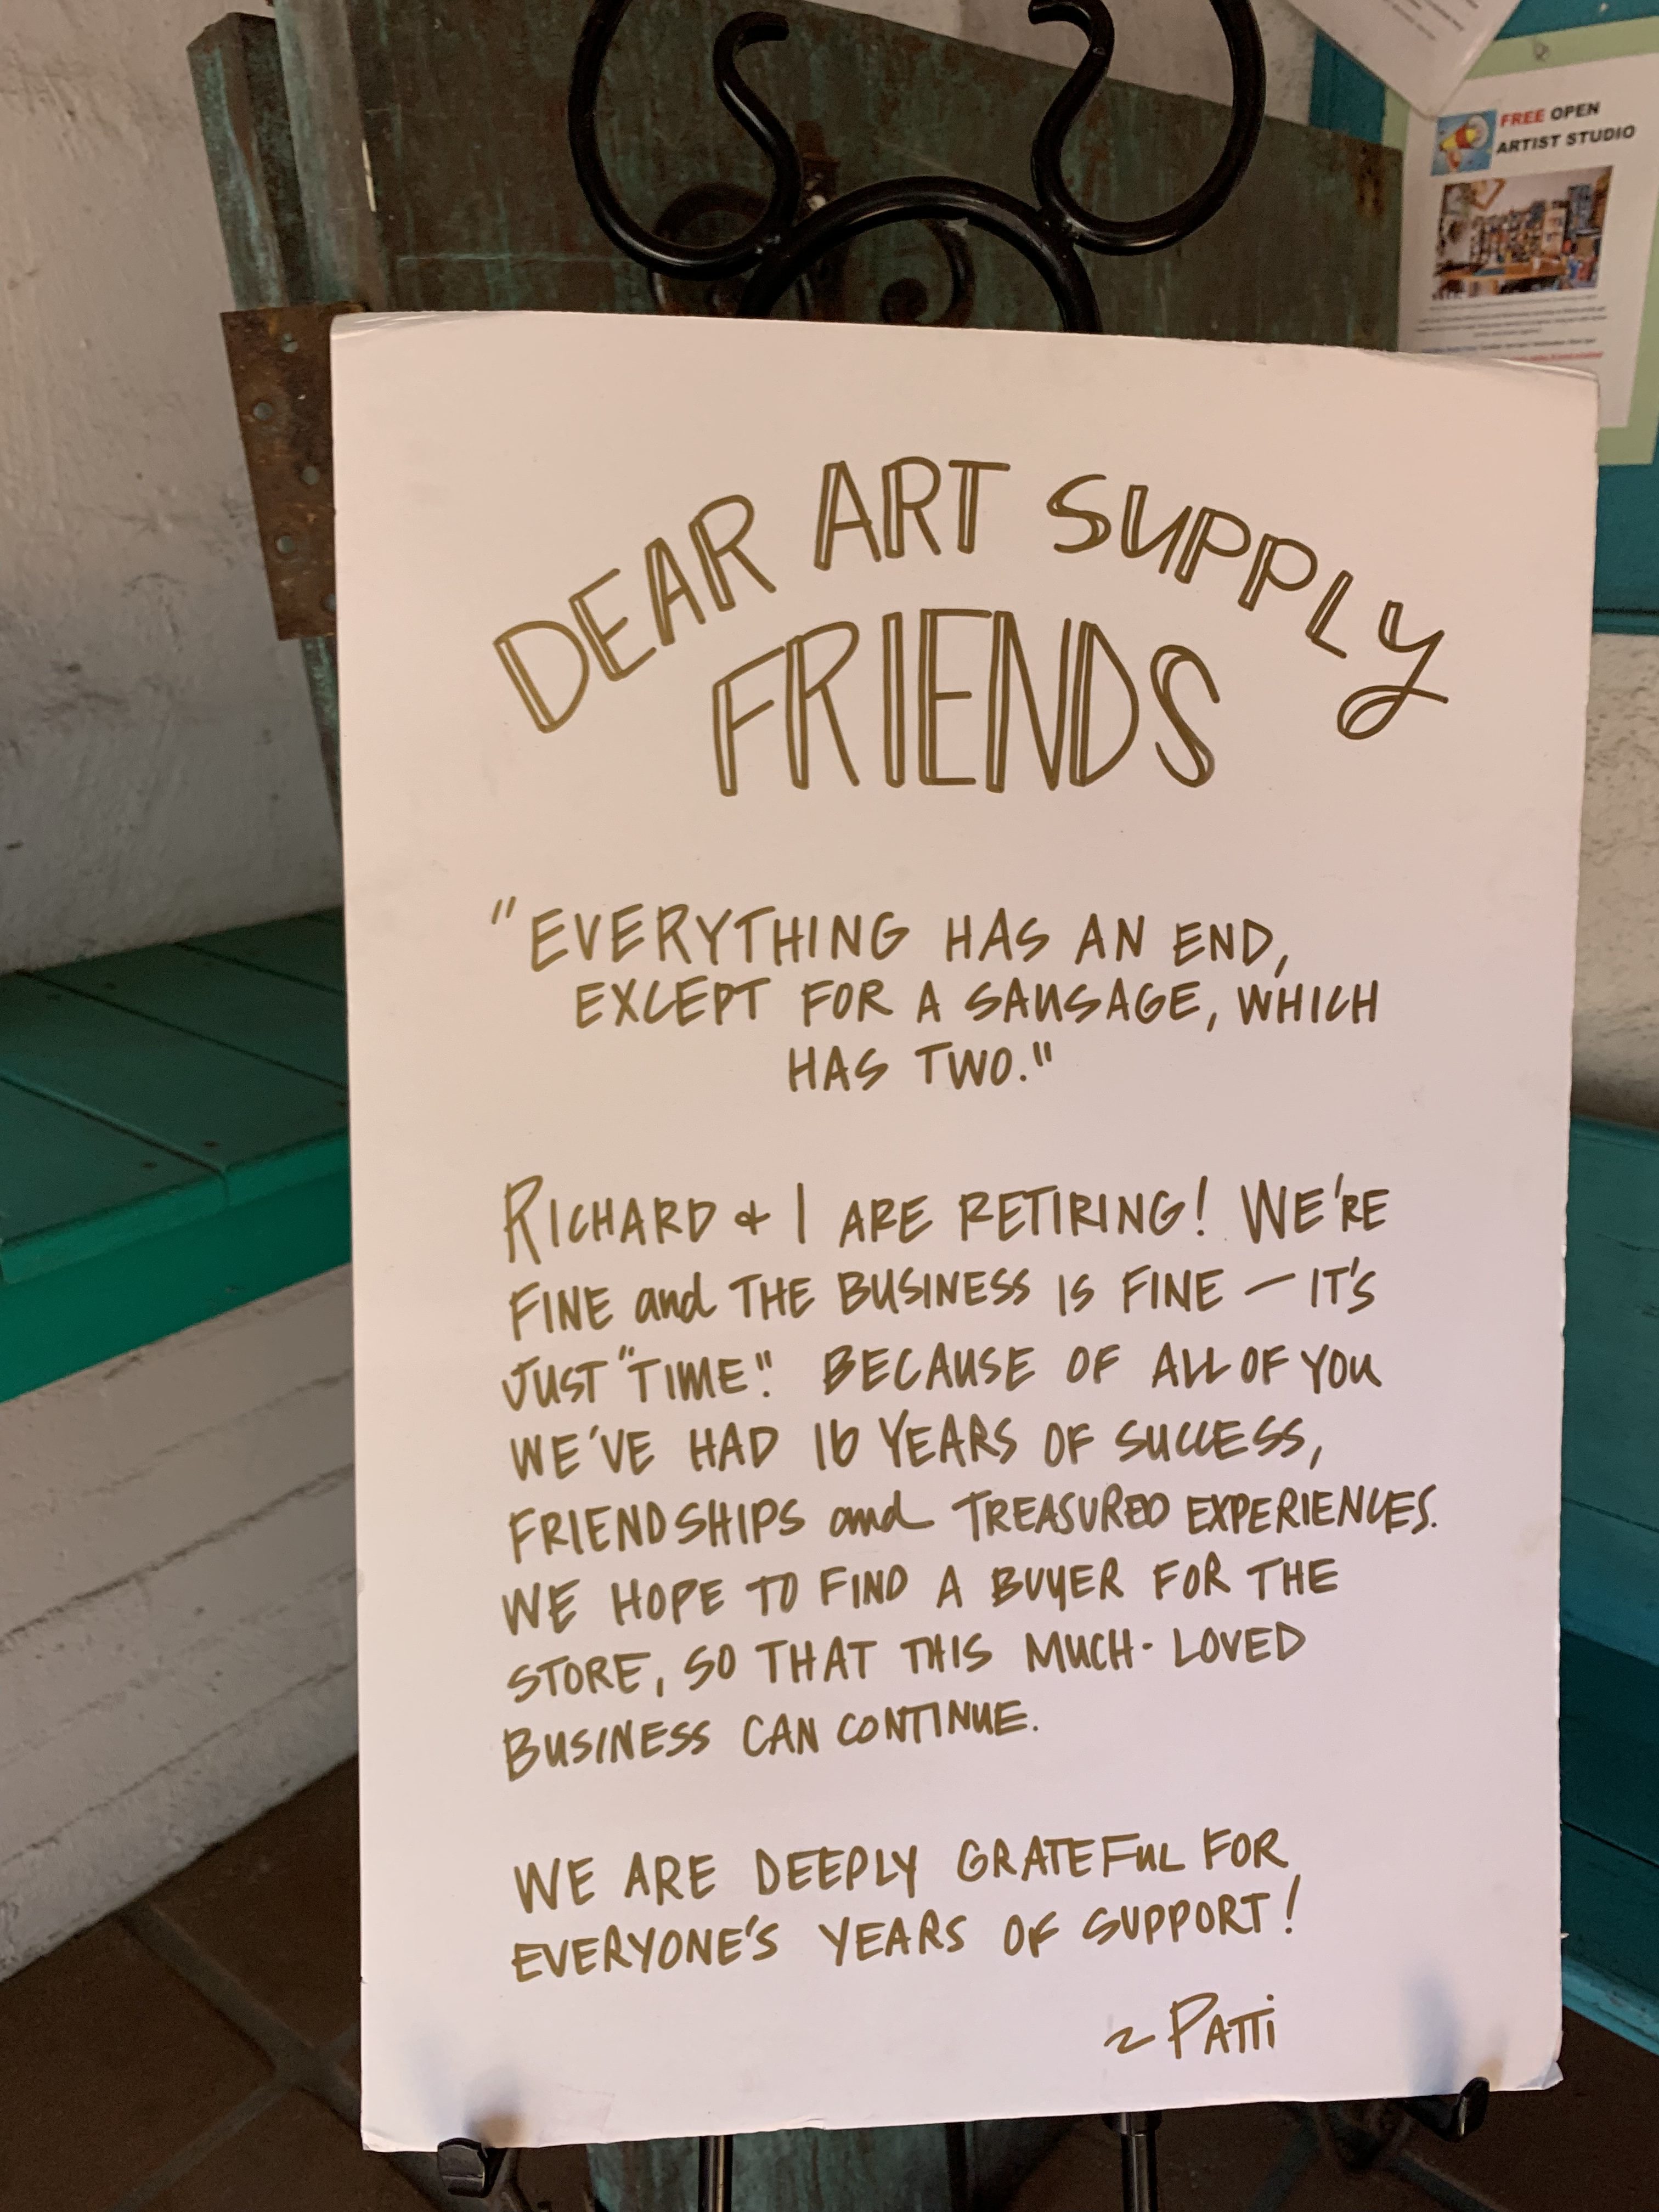 FREE OPEN
ARTIST STUDIO
DEAR ART SUPPLY
FRIENDS
"EVERYTHING HAS AN END,
EXCEPT FOR A SAUSAGE, WHICH
HAS TWO."
RICHARD & I ARE RETIRING! WE'RE
FINE and THE BUSINESS IS FINE — IT'S
JUST "TIME." BECAUSE OF ALL OF YOU
WE'VE HAD 16 YEARS OF SUCCESS,
FRIENDSHIPS and TREASURED EXPERIENCES.
WE HOPE TO FIND A BUYER FOR THE
STORE, SO THAT THIS MUCH-LOVED
BUSINESS CAN CONTINUE.
WE ARE DEEPLY GRATEFUL FOR
EVERYONE'S YEARS OF SUPPORT!
~ PATTi